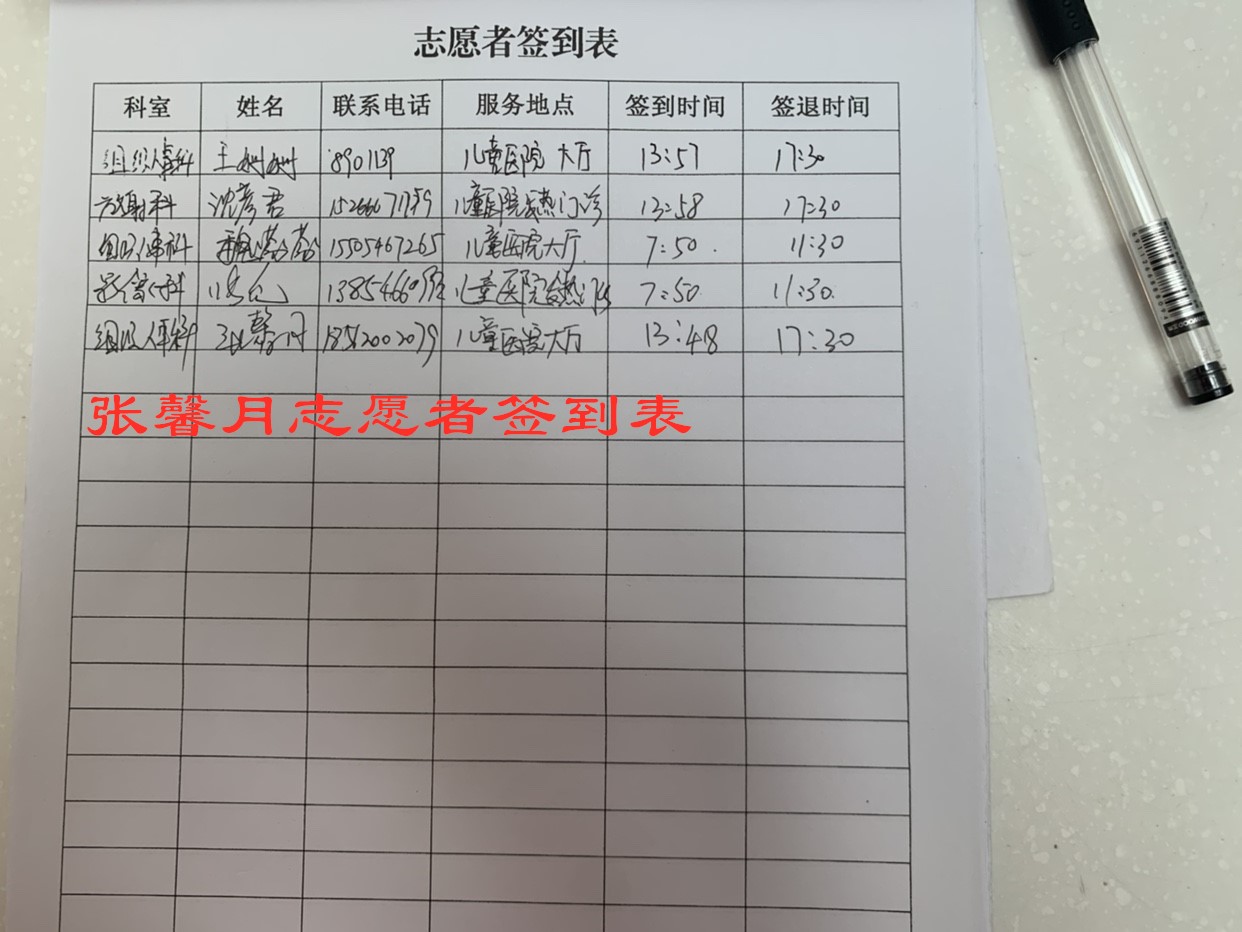 志愿者签到表
科室 姓名 联系电话 服务地点 签到时间 签退时间
组织人事科 王树树 8901139 儿童医院 大厅 13:57 17:30
放射科 沈彦君 儿童医院发热门诊 13:58 17:30
组织人事科 15505467265 儿童医院大厅 7:50 11:30
儿童医院发热门诊 7:50 11:30
组织人事科 张馨月 18562002079 儿童医院大厅 13:48 17:30
张馨月志愿者签到表